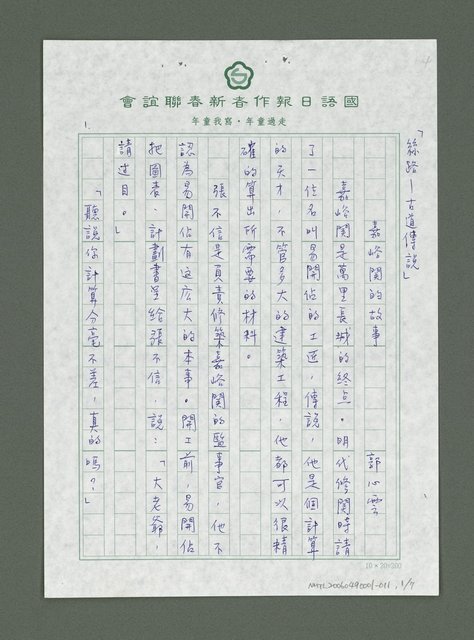 國語日報作者新春聯誼會
走過童年・寫我童年
「絲路—古道傳說」
嘉峪関的故事
郭心雲
嘉峪関是萬里長城的終点。明代修関時請
了一位名叫易開佔的工匠,傳說,他是個計算
的天才,不管多大的建築工程,他都可以很精
確的算出所需要的材料。
張不信是負責修築嘉峪関的監事官,他不
認為易開佔有这広大的本事。開工前,易開佔
把圖表、計劃書呈給張不信,說:「大老爺,
請过目。」
「聽說你計算分毫不差,真的嗎?」
10×20=200
NMTL20060490001-011, 1/7